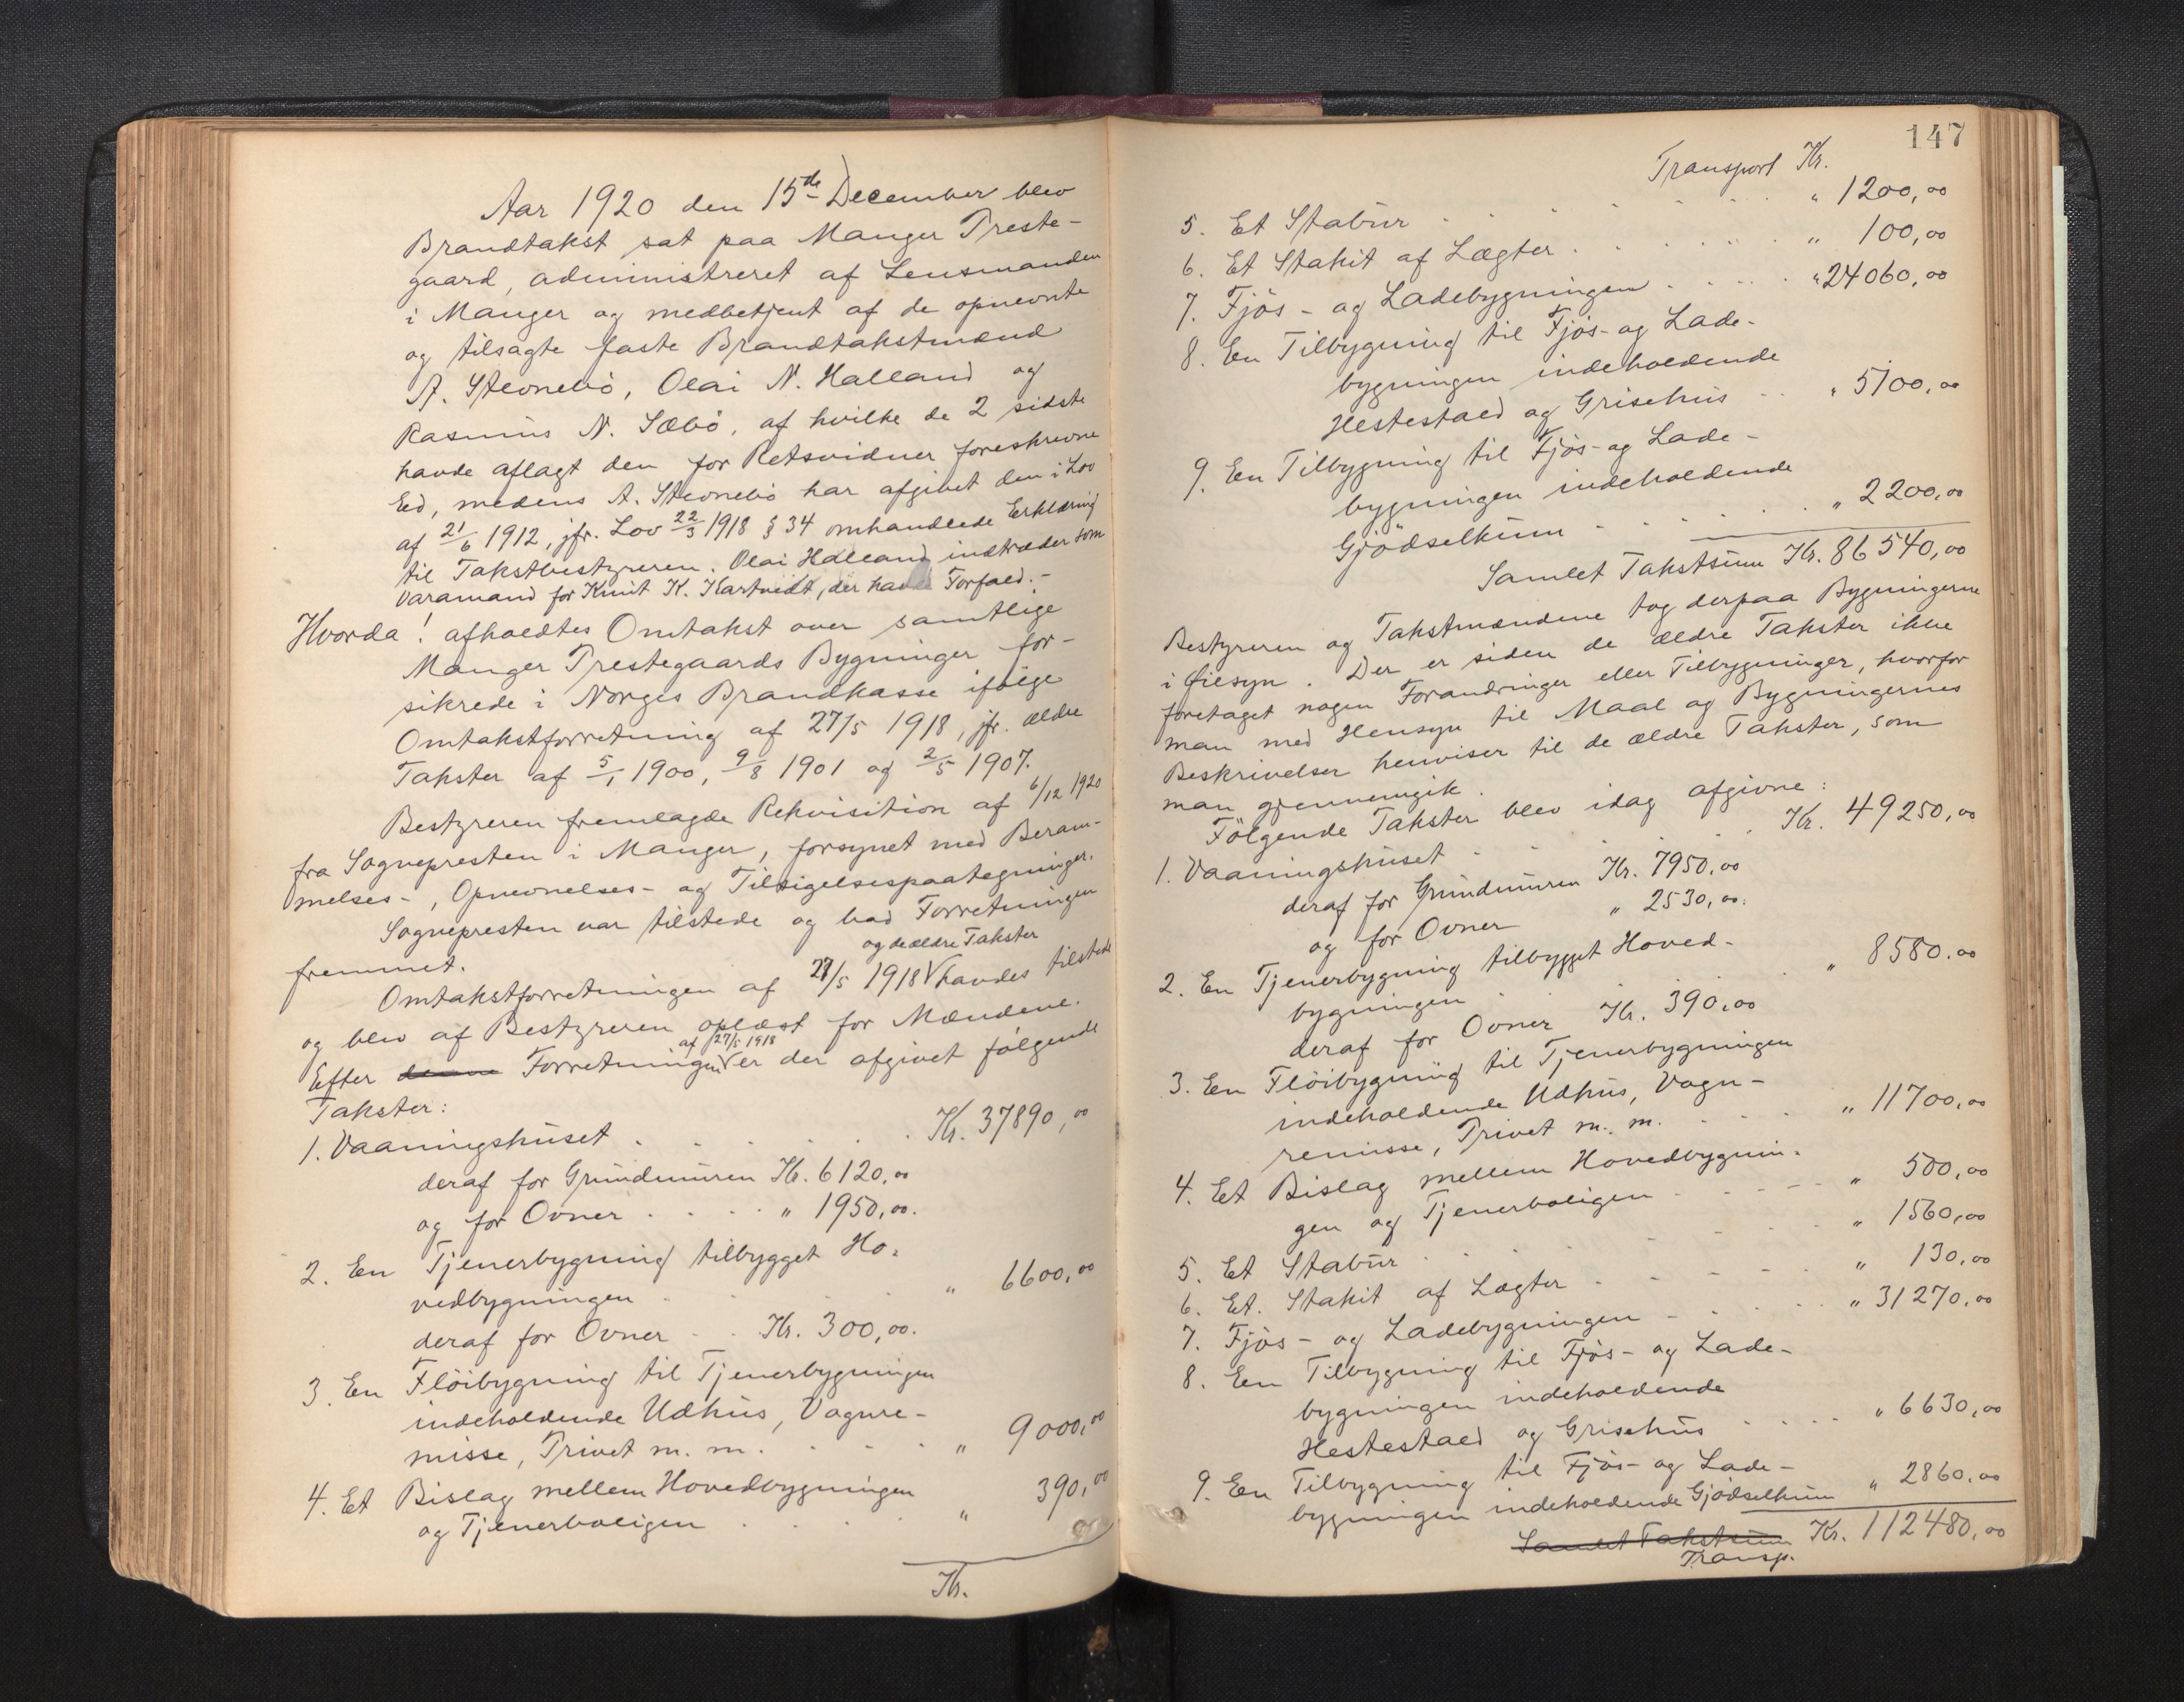 Aar 1920 den 15de December blev
Brandtakst sat paa Manger Preste-
gaard, administreret af Lensmanden
i Manger og medbetjent af de opnevnte
og tilsagte faste Brandtakstmænd
A. Stevnebö, Olai N. Halland og
Rasmus N. Sæbö, af hvilke de 2 sidste
havde aflagt den for Retsvidner foreskrevne
Ed, medens A. Stevnebö har afgivet den i Lov
af 21/6 1912, jfr. Lov 22/3 1918 § 34 omhandlede Erklæring
til Takstbestyreren. Olai Halland indtræder som
Varamand for Knut K. Kartveidt, der havde Forfald.-
Hvorda! afholdtes Omtakst over samtlige
Manger Prestegaards Bygninger for-
sikrede i Norges Brandkasse ifølge
Omtakstforretning af 27/5 1918, jfr. ældre
Takster af 5/1 1900, 9/8 1901 og 2/5 1907.
Bestyreren fremlagde Rekvisition af 6/12 1920
fra Sognepresten i Manger, forsynet med Beram-
melses-, Opnevnelses- og Tilsigelsespaategninger.
Sognepresten var tilstede og bad Forretningen
fremmet.
og de ældre Takster
Omtakstforretningen af 27/5 1918 V havdes tilstede
og blev af Bestyreren oplæst for Mændene.
af 27/5 1918
Efter denne Forretningen V er der afgivet følgende
Takster:
1. Vaaningshuset . . . . . . Kr. 37890,00
deraf for Grundmuren Kr. 6120,00
og for Ovner . . . . " 1950,00.
2. En Tjenerbygning tilbygget Ho-
vedbygningen . . . . " 6600,00
deraf for Ovner . . Kr. 300,00.
3. En Flöibygning til Tjenerbygningen
indeholdende Udhus, Vognre-
misse, Privet m. m. . . . . " 9000,00
4. Et Bislag mellem Hovedbygningen
og Tjenerboligen . . . . " 390,00
Kr.
147
Transport Kr.
5. Et Stabur . . . . . . " 1200,00
6. Et Stakit af Lægter . . . . . " 100,00
7. Fjös- og Ladebygningen . . . . " 24060,00
8. En Tilbygning til Fjös- og Lade-
bygningen indeholdende
Hestestald og Grisehus . . " 5100,00
9. En Tilbygning til Fjös- og Lade-
bygningen indeholdende
Gjödselkum . . . . . " 2200,00
Samlet Takstsum Kr. 86540,00
Bestyreren og Takstmændene tog derpaa Bygningerne
i Øiesyn. Der er siden de ældre Takster ikke
foretaget nogen Forandringer eller Tilbygninger, hvorfor
man med Hensyn til Maal og Bygningernes
Beskrivelser henviser til de ældre Takster, som
man gjennemgik.
Følgende Takster blev idag afgivne:
1. Vaaningshuset . . . . . Kr. 49250,00
deraf for Grundmuren Kr. 7950,00
og for Ovner " 2530,00.
2. En Tjenerbygning tilbygget Hoved-
bygningen . . . . . " 8580.00
deraf for Ovner Kr. 390,00
3. En Flöibygning til Tjenerbygningen
indeholdende Udhus, Vogn-
remisse, Privet m. m. . . . . " 11700,00
4. Et Bislag mellem Hovedbygnin-
gen og Tjenerboligen . . . . " 500,00
5. Et Stabur . . . . . . " 1560,00
6. Et. Stakit af Lægter . . . . " 130,00
7. Fjös- og Ladebygningen . . . . . " 31270,00
8. En Tilbygning til Fjös- og Lade-
bygningen indeholdende
Hestestald og Grisehus . . . . " 6630,00
9. En Tilbygning til Fjös- og Lade-
bygningen indeholdende Gjödselkum " 2860,00
Samlet Takstsum Kr. 112480,00
Transp.